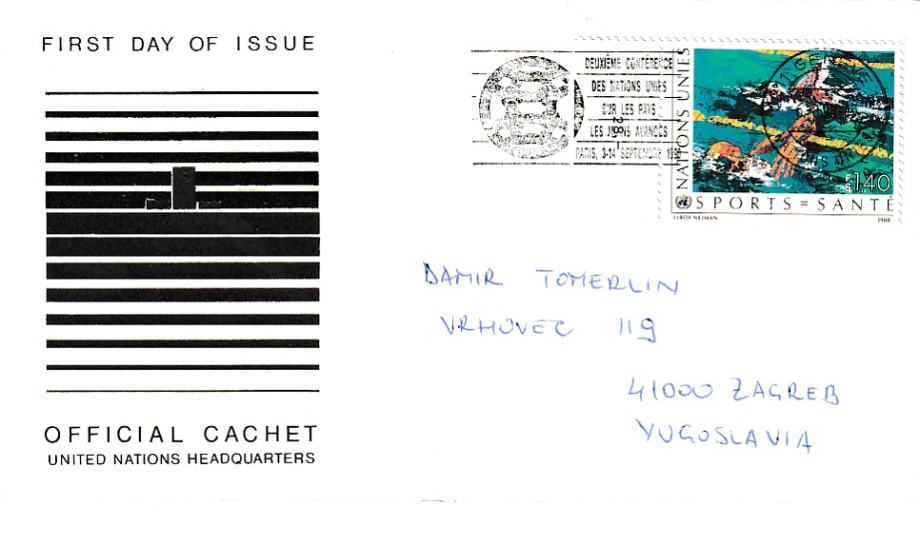 FIRST DAY OF ISSUE
DEUXIÈME CONFÉRENCE
DES NATIONS UNIES
SUR LES PAYS
LES MOINS AVANCÉS
PARIS, 3-14 SEPTEMBRE
NATIONS UNIES
1,40
SPORTS = SANTÉ
LEROY NEIMAN 1988
DAMIR TOMERLIN
VRHOVEC 119
41000 ZAGREB
YUGOSLAVIA
OFFICIAL CACHET
UNITED NATIONS HEADQUARTERS